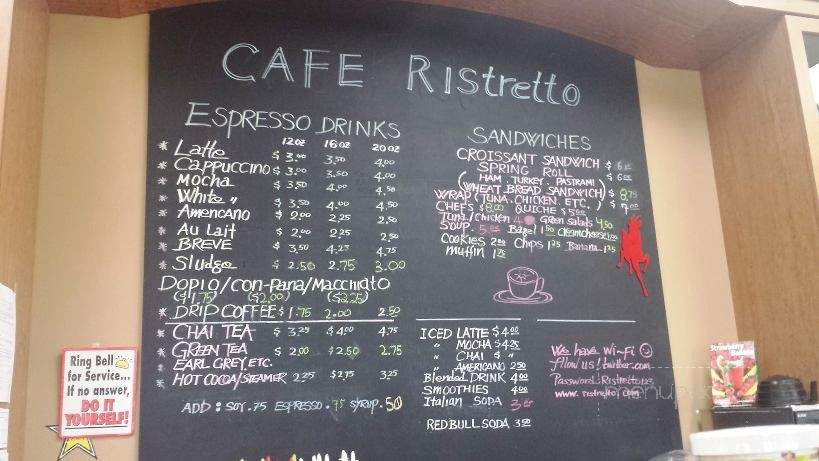 CAFE RIStretto
ESPRESSO DRINKS
12 oz 16 oz 20 oz
* Latte $3.00 3.50 4.00
* Cappuccino $3.00 3.50 4.00
* Mocha $3.50 4.00 4.50
* White " $3.50 4.00 4.50
* Americano $2.00 2.25 2.50
* Au Lait $2.00 2.25 2.50
* BREVE $3.50 4.25 4.75
* Sludge $2.50 2.75 3.00
DOPIO/CON-Pana/Macchiato
($1.75) ($2.00) ($2.25)
* DRIP COFFEE $1.75 2.00 2.50
* CHAI TEA $3.25 $4.00 4.75
* GREEN TEA $2.00 $2.50 2.75
EARL GREY, ETC.
* HOT COCOA/STEAMER 2.25 $2.75 3.25
ADD: SOY .75 ESPRESSO .75 SYRUP .50
SANDWICHES
CROISSANT SANDWICH $
SPRING ROLL $
(HAM, TURKEY, PASTRAMI)
(WHEAT BREAD SANDWICH) $
WRAP (TUNA, CHICKEN, ETC.) $
CHEFS $8.00 QUICHE $
Tuna/Chicken Green salads 4.50
SOUP Bagel 1.50 Creamcheese
COOKIES Chips 1.25 Banana
Muffin
ICED LATTE $4.00
" MOCHA $4.25
" CHAI $ "
" AMERICANO 2.50
Blended DRINK 4.00
SMOOTHIES 4.00
Italian SODA
REDBULL SODA 3.50
We have Wi-Fi
follow us! twitter.com
Password: Ristretto123
www.ristretto.com
Ring Bell
for Service...
If no answer,
DO IT
YOURSELF!
Strawberry